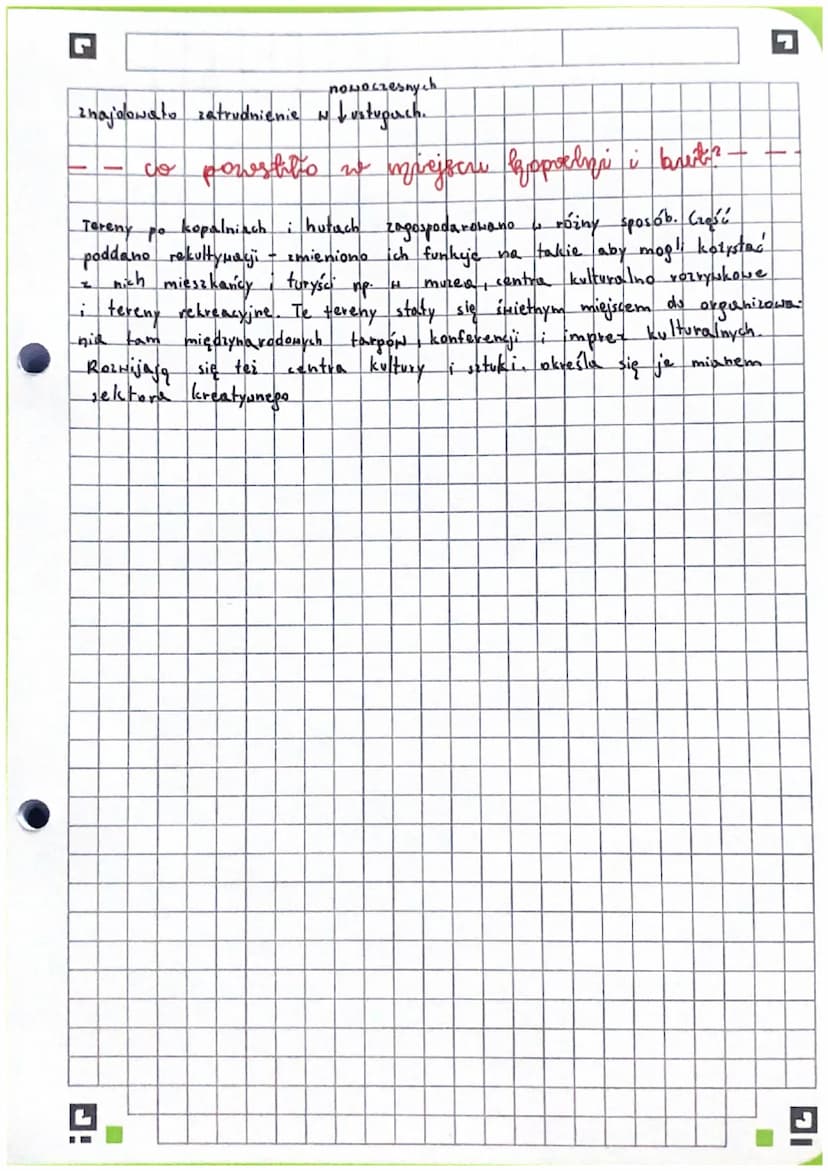 nowoczesnych
znajdowało zatrudnienie w usługach.
-- co powstało w miejscu kopalni i hut? ---
Tereny po kopalniach i hutach zagospodarowano w różny sposób. Część
poddano rekultywacji - zmieniono ich funkcję na takie aby mogli kożystać
z nich mieszkańcy i turyści np. w muzea, centra kulturalno rozrywkowe
i tereny rekreacyjne. Te tereny stały się świetnym miejscem do organizowa-
nia tam międzynarodowych targów, konferencji i imprez kulturalnych.
Rozwijają się też centra kultury i sztuki. określa się je mianem
sektora kreatywnego